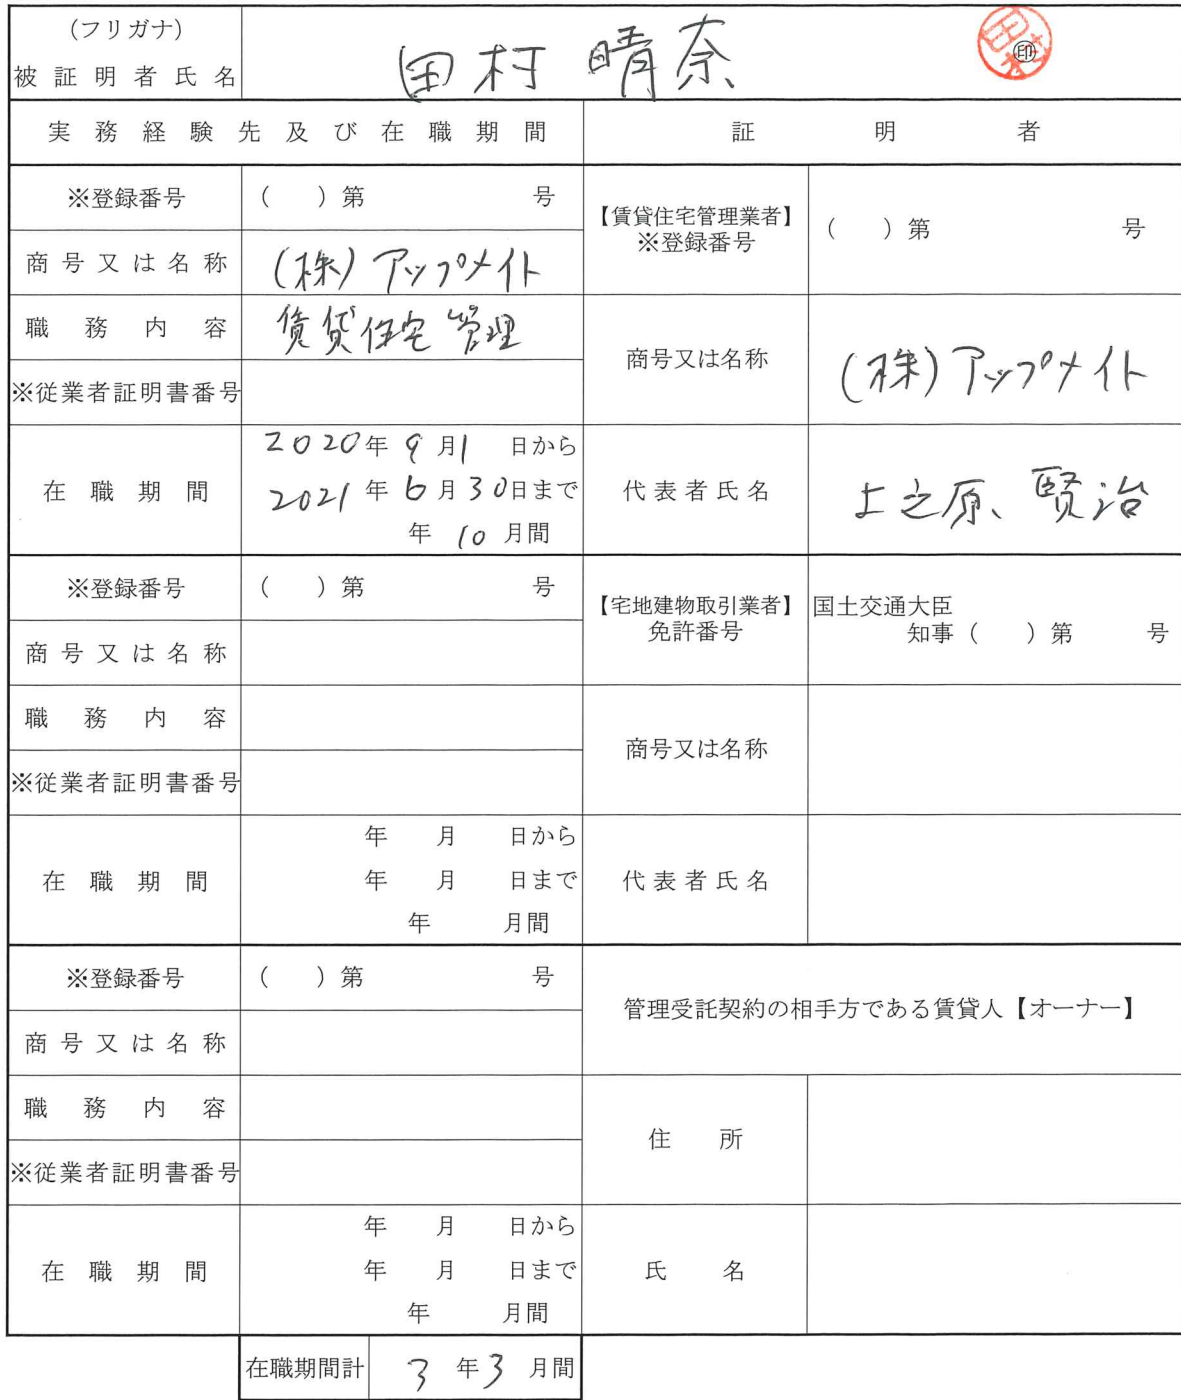 (フリガナ)
被証明者氏名 田村 晴奈 ㊞
実務経験先及び在職期間 証明者
※登録番号 ( )第 号
【賃貸住宅管理業者】
※登録番号
( )第 号
商号又は名称 (株)アップメイト
職務内容 賃貸住宅管理
商号又は名称 (株)アップメイト
※従業者証明書番号
在職期間
2020年9月1日から
2021年6月30日まで
年10月間
代表者氏名 上之原 賢治
※登録番号 ( )第 号
【宅地建物取引業者】
免許番号
国土交通大臣
知事( )第 号
商号又は名称
職務内容
商号又は名称
※従業者証明書番号
在職期間
年 月 日から
年 月 日まで
年 月間
代表者氏名
※登録番号 ( )第 号
管理受託契約の相手方である賃貸人【オーナー】
商号又は名称
職務内容
住所
※従業者証明書番号
在職期間
年 月 日から
年 月 日まで
年 月間
氏名
在職期間計 3年3月間